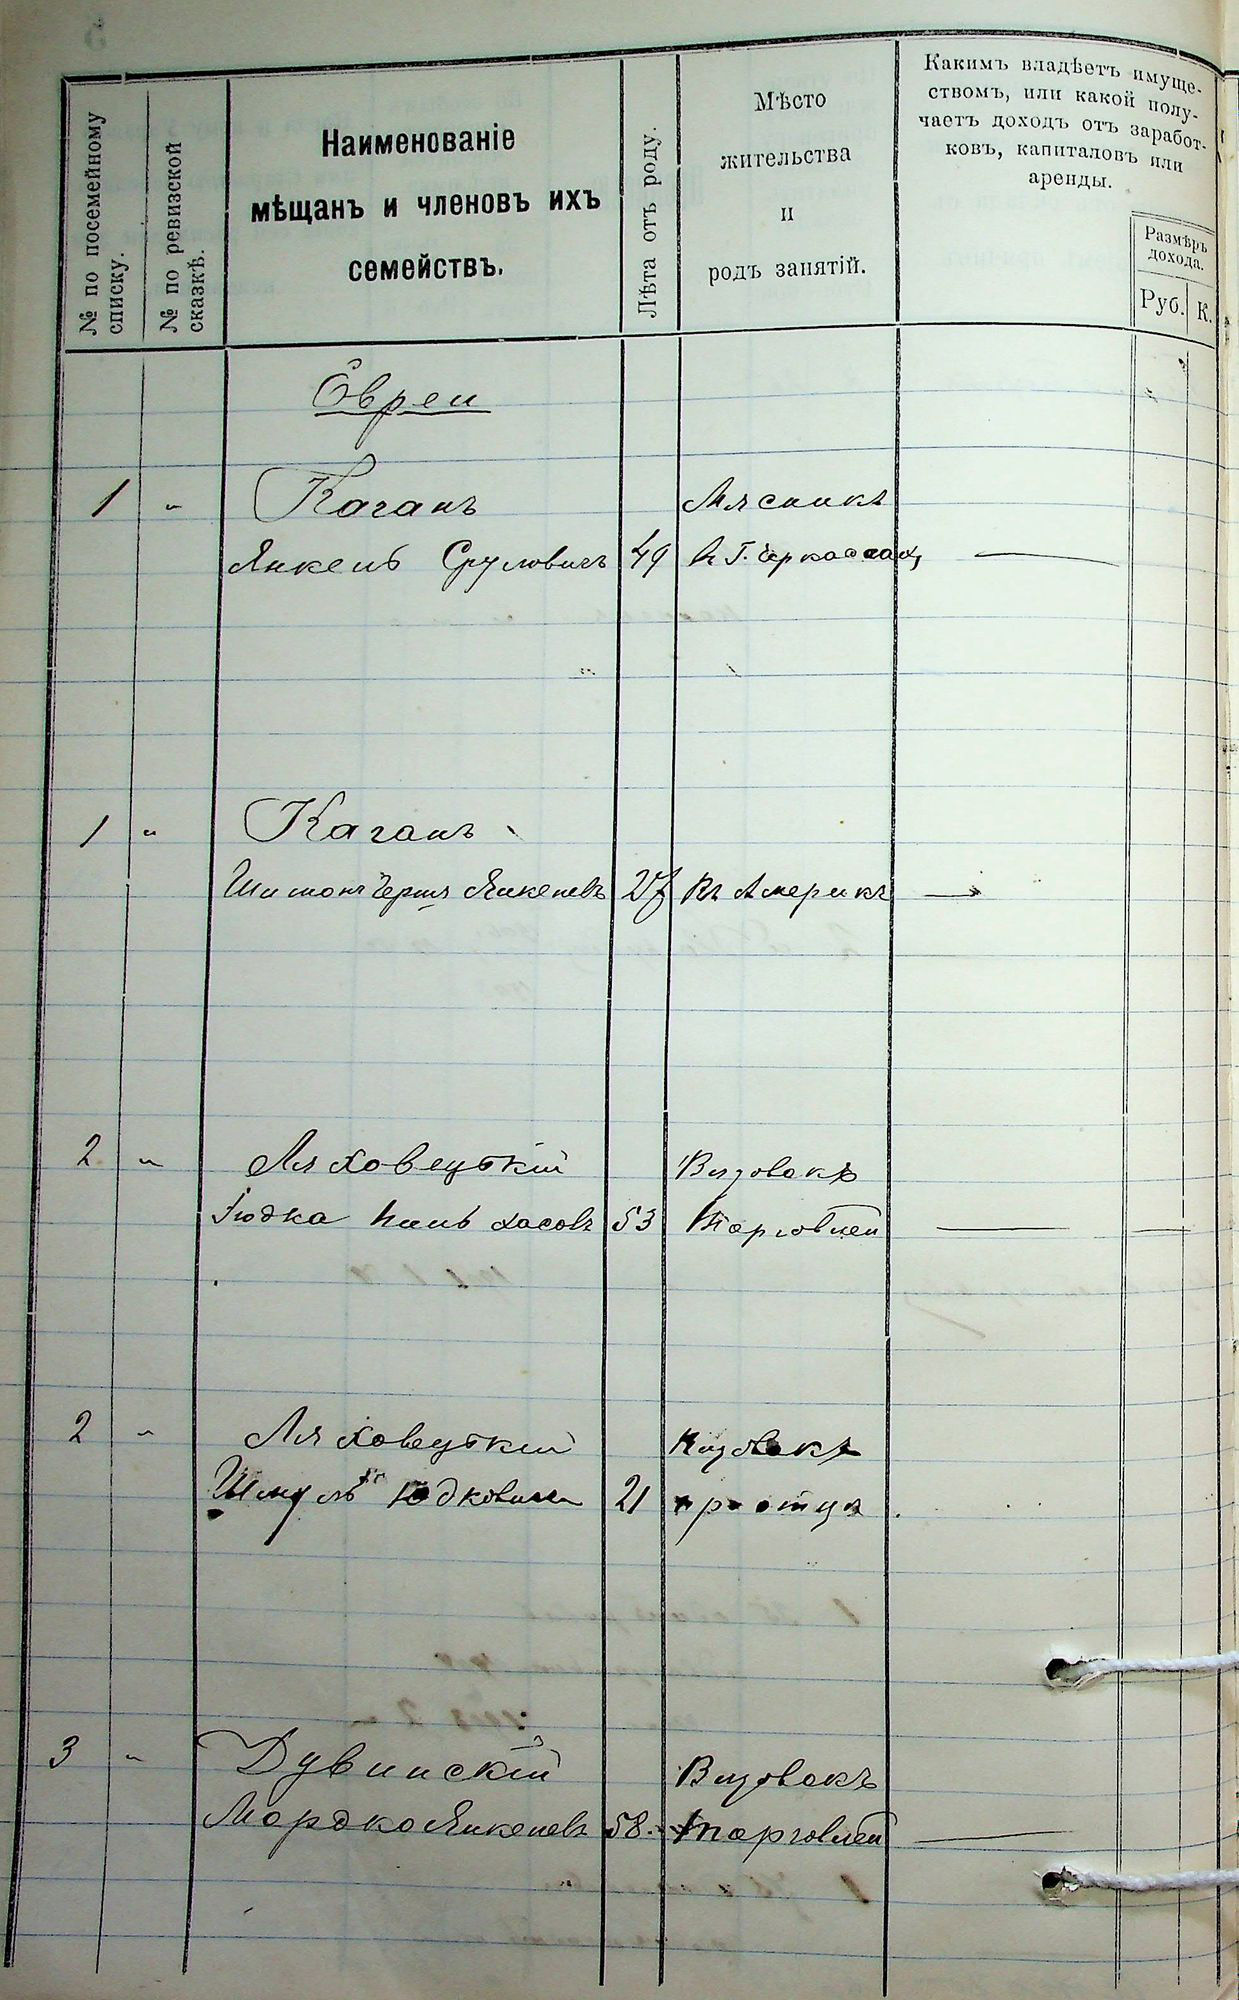 № по посемейному
списку.
№ по ревизской
сказкѣ.
Наименованіе
мѣщанъ и членовъ ихъ
семействъ.
Лѣта отъ роду.
Мѣсто
жительства
и
родъ занятій.
Какимъ владѣетъ имуще-
ствомъ, или какой полу-
чаетъ доходъ отъ заработ-
ковъ, капиталовъ или
аренды.
Размѣръ
дохода.
Руб. К.
Евреи
1 " Каганъ Мясникъ
Янкель Сруловичъ 49 въ Г. Черкассахъ —
1 " Каганъ
Шимонъ Янкелевъ 27 Въ Америкѣ —
2 " Ляховецькій
Іюдка 53 Торговлей — —
2 " Ляховецькій
Шмуль Юдковичъ 21 при отцѣ
3 " Дувинскій
Мордко Янкелевъ 58 торговлей —